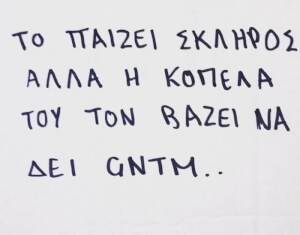 ΤΟ ΠΑΙΖΕΙ ΣΚΛΗΡΟΣ
ΑΛΛΑ Η ΚΟΠΕΛΑ
ΤΟΥ ΤΟΝ ΒΑΖΕΙ ΝΑ
ΔΕΙ GNTM..